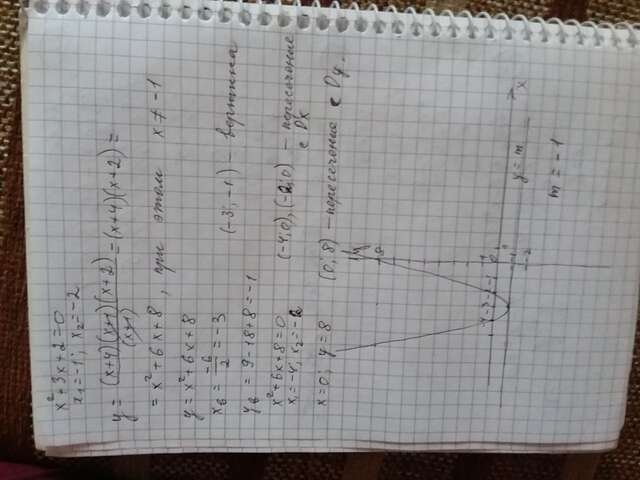 x² + 3x + 2 = 0
x₁ = -1; x₂ = -2
y = (x+4)(x+1)(x+2) / (x+1) = (x+4)(x+2) =
= x² + 6x + 8, при этом x ≠ -1
y = x² + 6x + 8
xв = -6/2 = -3
(-3; -1) - вершина
yв = 9 - 18 + 8 = -1
x² + 6x + 8 = 0
x₁ = -4; x₂ = -2
(-4; 0), (-2; 0) - пересечение с Ox
x = 0; y = 8 (0; 8) - пересечение с Oy.
y
8
1
-4 -3 -2 -1 0
x
-1
y = m
-2
m = -1